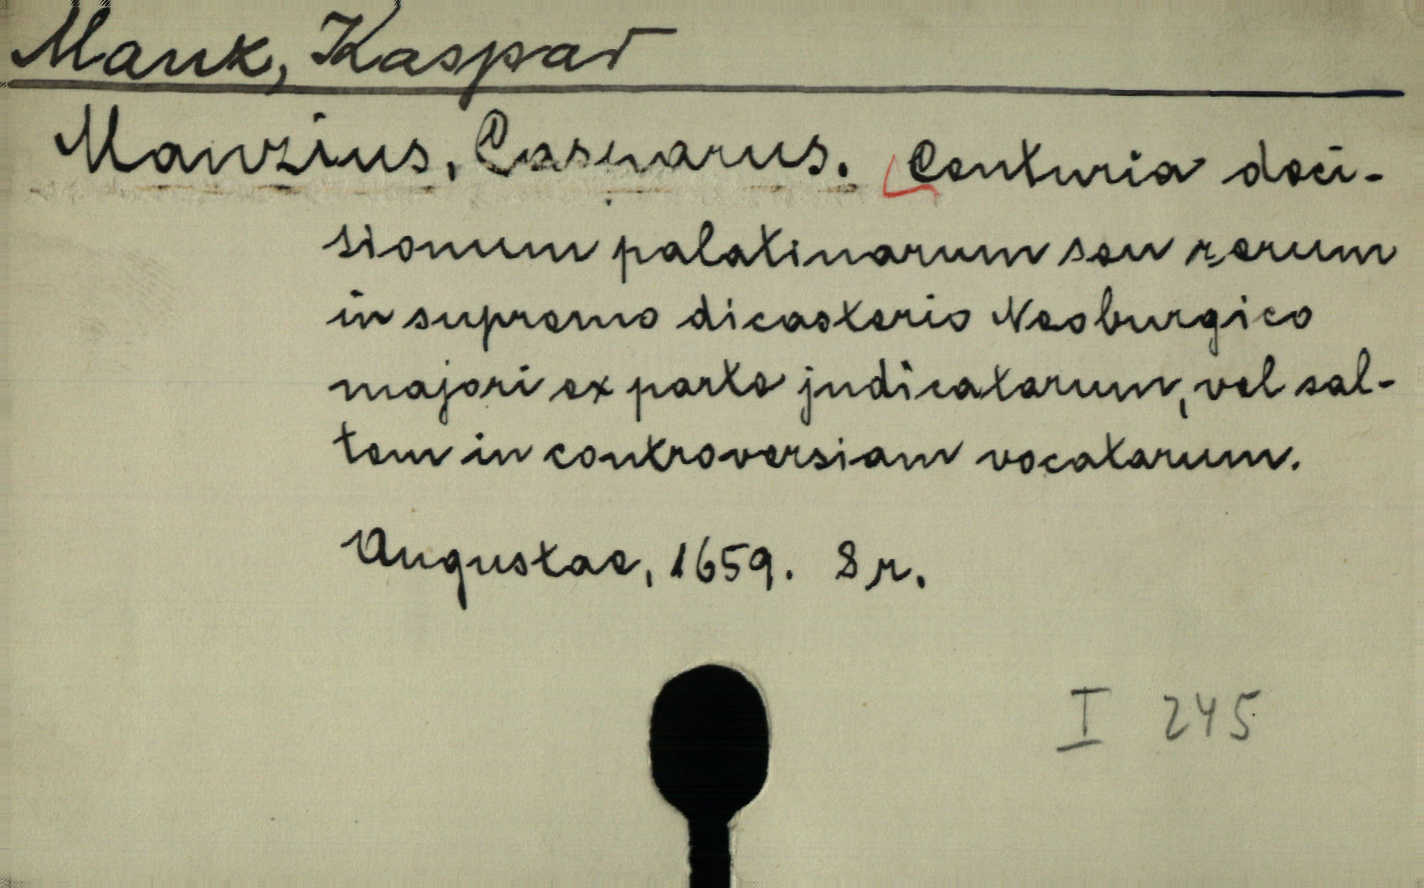 Manz, Kaspar
Manzius, Casparus. Centuria deci-
sionum palatinarum seu rerum
in supremo dicasterio Neoburgico
majori ex parte judicatarum, vel sal-
tem in controversiam vocatarum.
Augustae, 1659. 8 r.
I 245